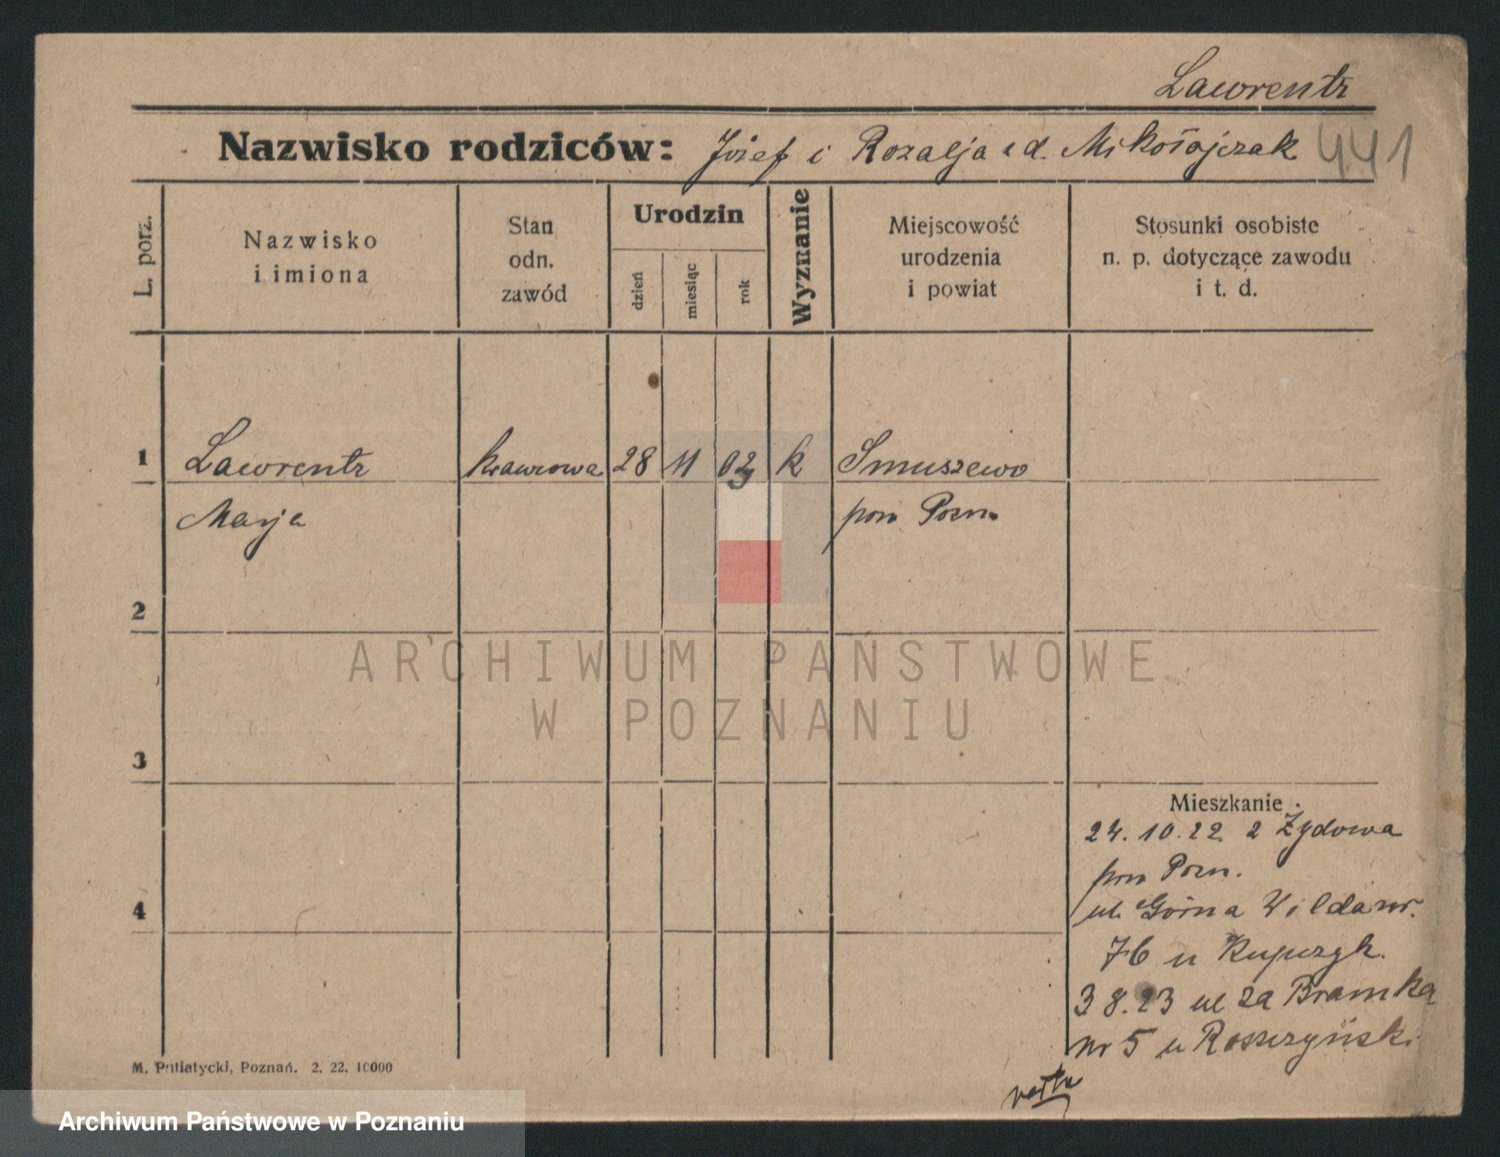 Lawrentz
Nazwisko rodziców: Józef i Rozalja z d. Mikołajczak 441
L. porz.
Nazwisko
i imiona
Stan
odn.
zawód
Urodzin
dzień
miesiąc
rok
Wyznanie
Miejscowość
urodzenia
i powiat
Stosunki osobiste
n. p. dotyczące zawodu
i t. d.
1 Lawrentz krawcowa 28 11 03 k Smuszewo
Marja pow Pozn.
2
ARCHIWUM PAŃSTWOWE
W POZNANIU
3
Mieszkanie
24. 10. 22 z Żydowa
pow Pozn.
4
ul. Górna Wilda nr.
76 u Kupczyk.
3 8. 23 ul za Bramką
nr 5 u Roszczyński
M. Putiatycki, Poznań. 2. 22. 10000
verte
Archiwum Państwowe w Poznaniu